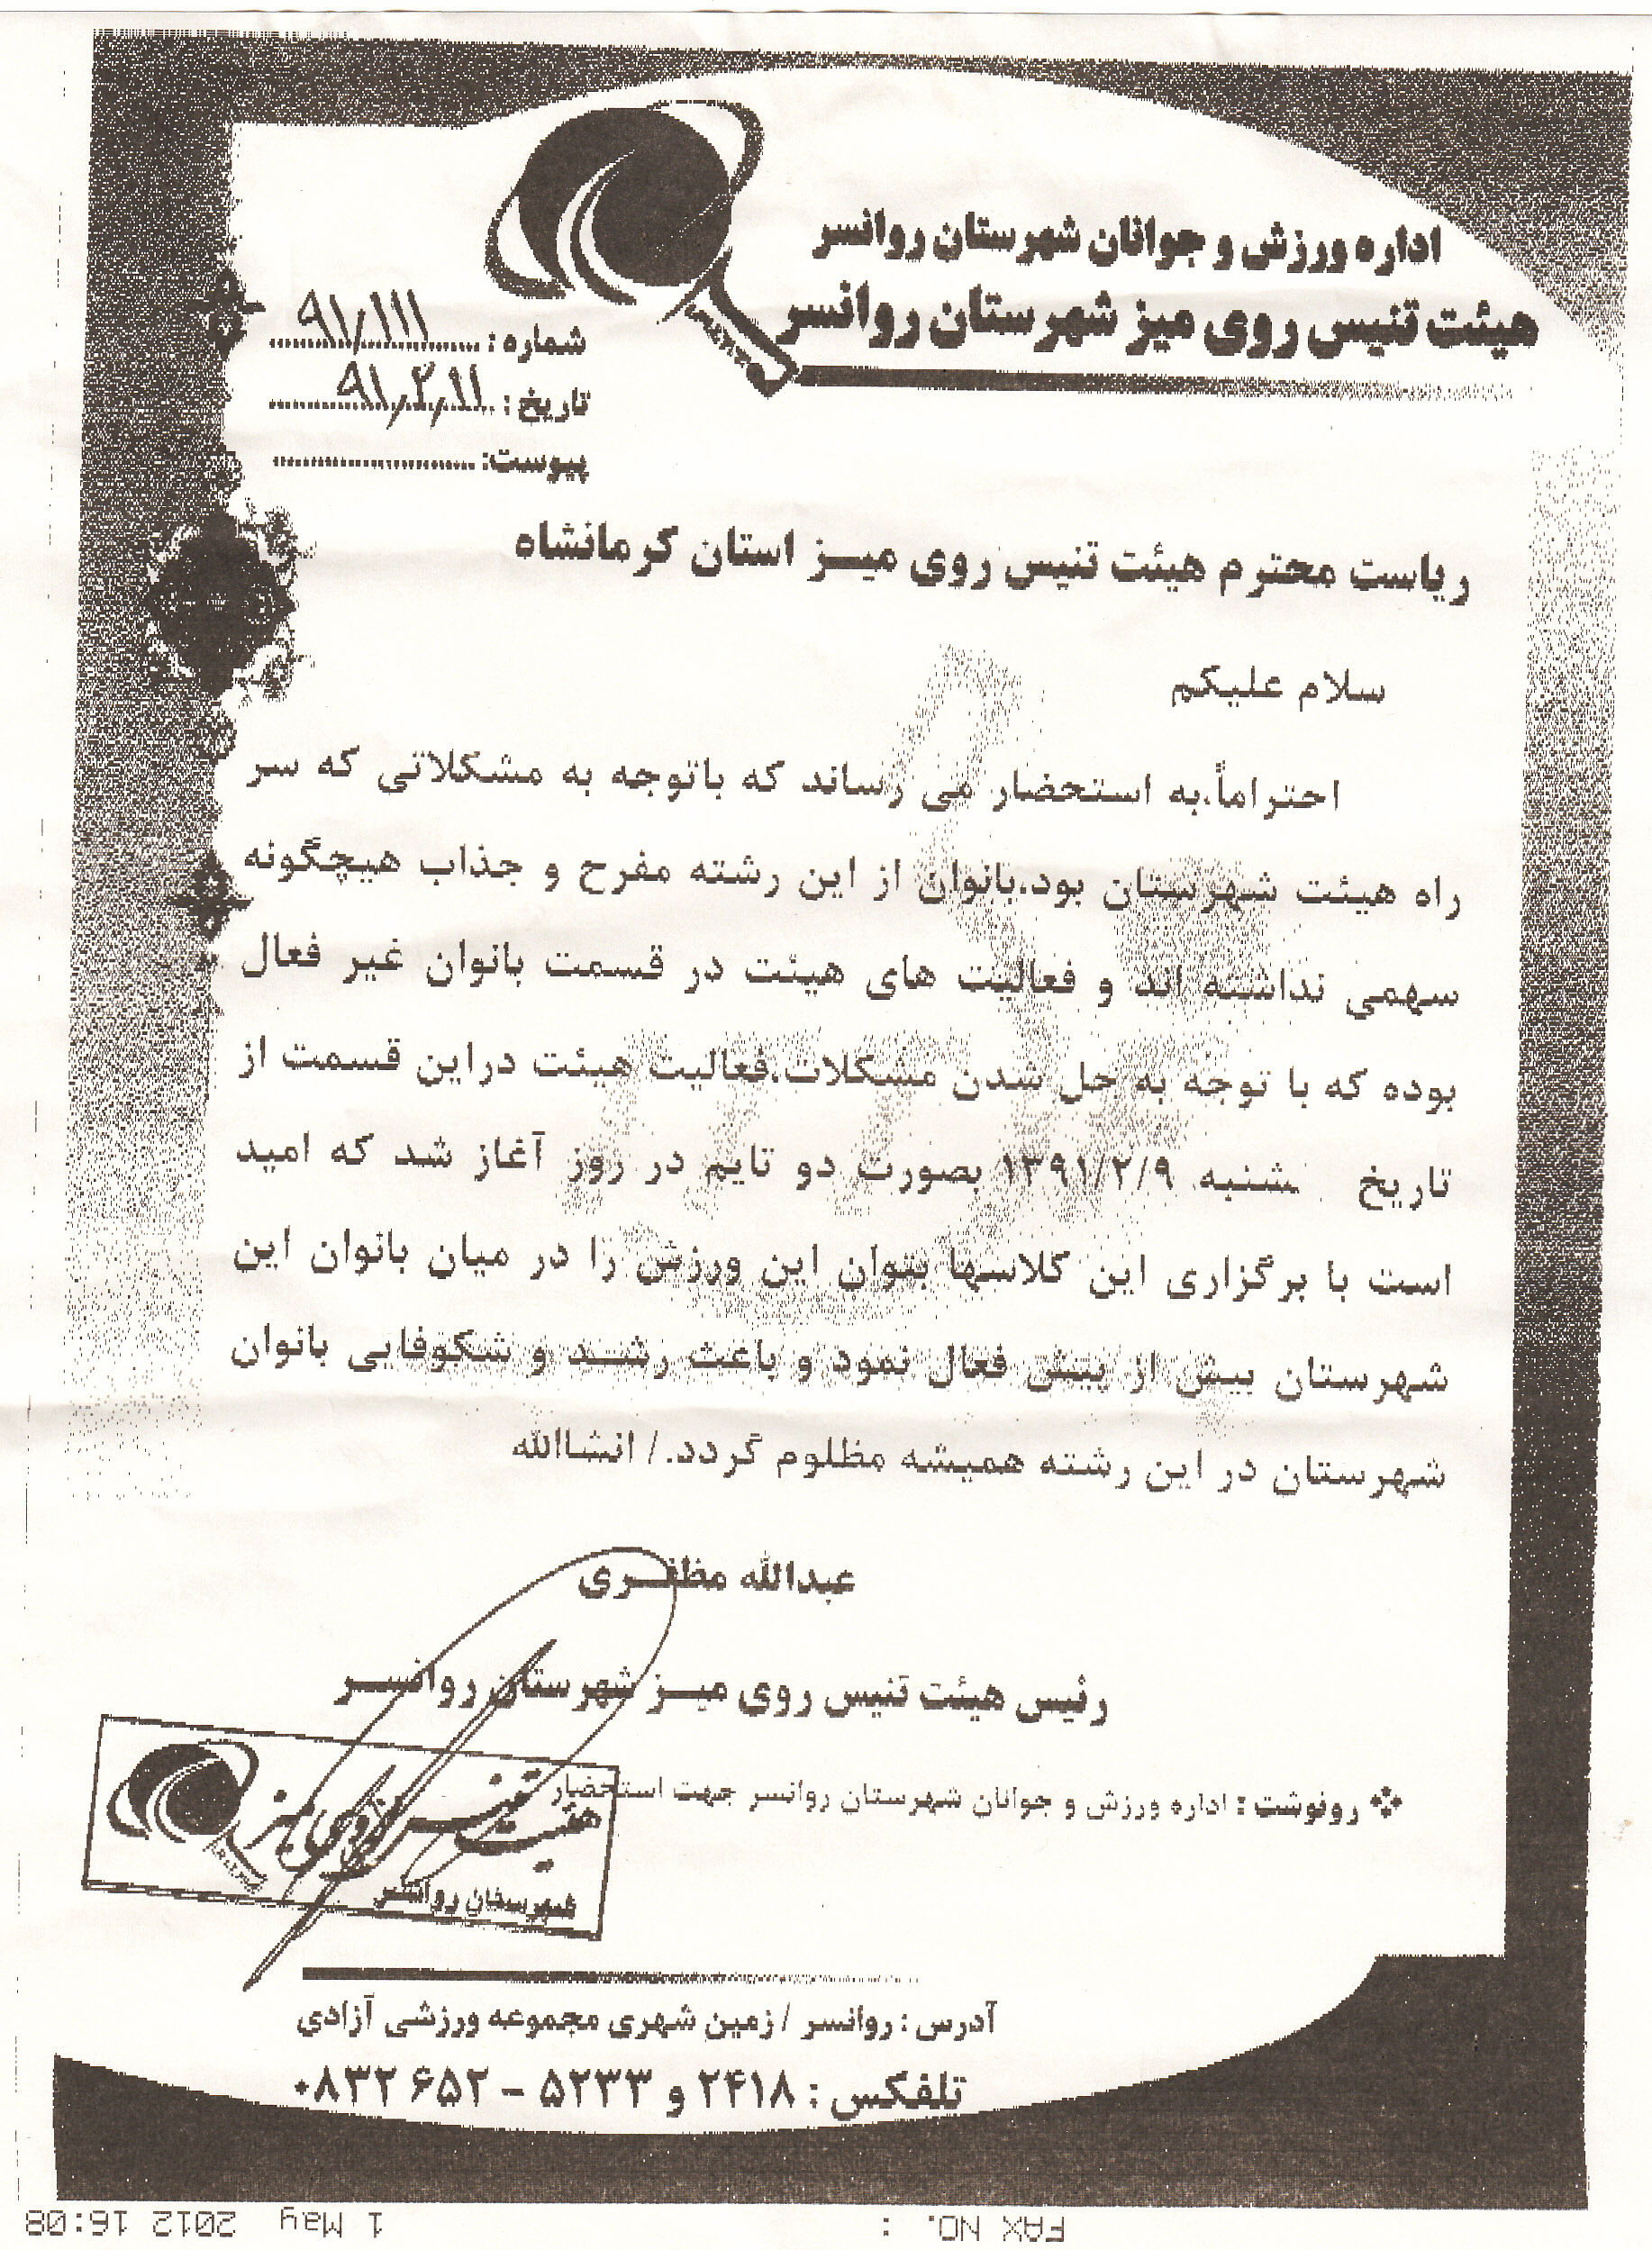 اداره ورزش و جوانان شهرستان روانسر
هیئت تنیس روی میز شهرستان روانسر
شماره : ۹۱/۱۱۱
تاریخ : ۹۱/۲/۱۱
پیوست:
ریاست محترم هیئت تنیس روی میز استان کرمانشاه
سلام علیکم
احتراماً،به استحضار می رساند که باتوجه به مشکلاتی که سر
راه هیئت شهرستان بود،بانوان از این رشته مفرح و جذاب هیچگونه
سهمی نداشته اند و فعالیت های هیئت در قسمت بانوان غیر فعال
بوده که با توجه به حل شدن مشکلات،فعالیت هیئت دراین قسمت از
تاریخ شنبه ۱۳۹۱/۲/۹ بصورت دو تایم در روز آغاز شد که امید
است با برگزاری این کلاسها بتوان این ورزش را در میان بانوان این
شهرستان بیش از پیش فعال نمود و باعث رشد و شکوفایی بانوان
شهرستان در این رشته همیشه مظلوم گردد./ انشاالله
عبدالله مظفری
رئیس هیئت تنیس روی میز شهرستان روانسر
رونوشت : اداره ورزش و جوانان شهرستان روانسر جهت استحضار
هیئت تنیس روی میز
شهرستان روانسر
آدرس : روانسر / زمین شهری مجموعه ورزشی آزادی
تلفکس : ۲۴۱۸ و ۵۲۳۳ – ۶۵۲ ۰۸۳۲
FAX NO. :
1 May 2012 16:08